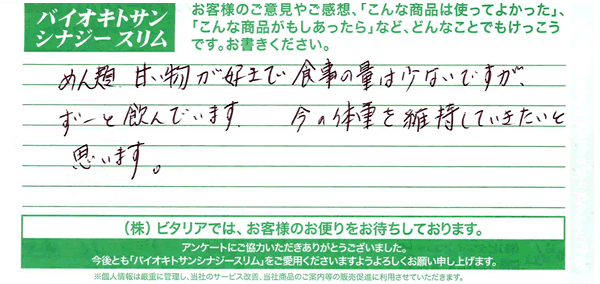 バイオキトサン
シナジー スリム
お客様のご意見やご感想、「こんな商品は使ってよかった」、
「こんな商品がもしあったら」など、どんなことでもけっこう
です。お書きください。
めん類 甘い物が好きで 食事の量は少ないですが、
ずーと飲んでいます。 今の体重を維持していきたいと
思います。
(株)ビタリアでは、お客様のお便りをお待ちしております。
アンケートにご協力いただきありがとうございました。
今後とも「バイオキトサンシナジースリム」をご愛用くださいますようよろしくお願い申し上げます。
※個人情報は厳重に管理し、当社のサービス改善、当社商品のご案内等の販売促進に利用させていただきます。